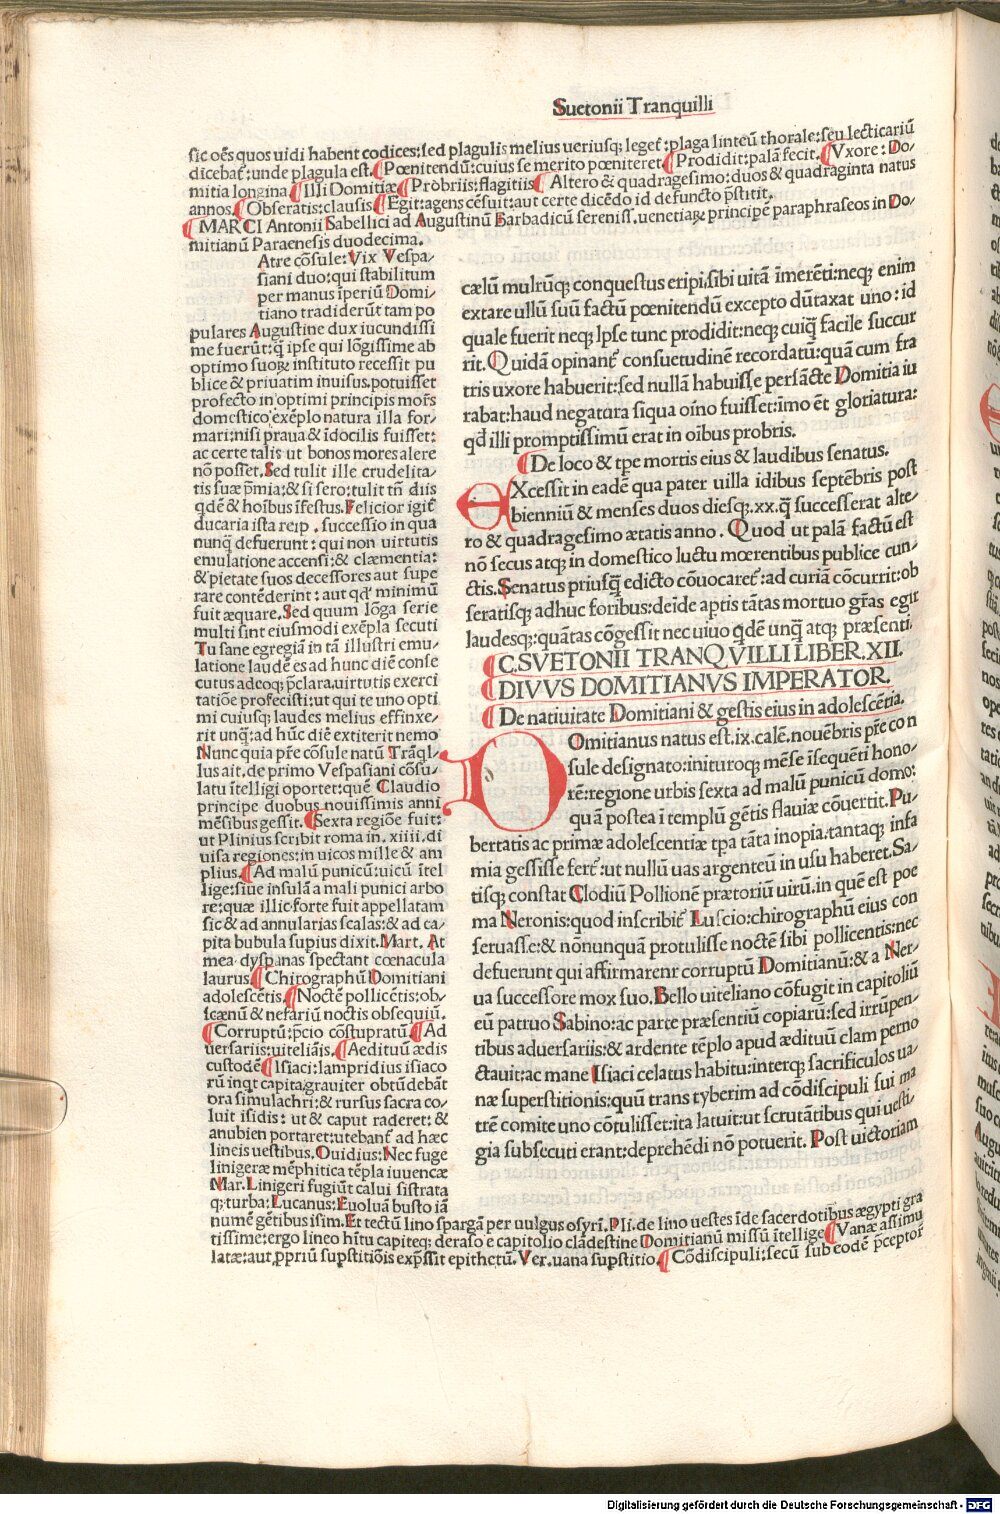 Suetonii Tranquilli
sic oēs quos uidi habent codices: sed plagulis melius ueriusq; leget̄: plaga linteū thorale: seu lecticariū
dicebat̄: unde plagula est. ¶ Pœnitendū: cuius se merito pœniteret ¶ Prodidit: palā fecit. ¶ Vxore: Do⸗
mitia longina ¶ Illi Domitiæ ¶ Probriis: flagitiis ¶ Altero & quadragesimo: duos & quadraginta natus
annos. ¶ Obseratis: clausis ¶ Egit: agens cēsuit: aut certe dicēdo id defuncto p̄stitit.
¶ MARCI Antonii Sabellici ad Augustinū Barbadicū sereniss. uenetiaꝝ principē paraphraseos in Do⸗
mitianū Paraenesis duodecima.
Atre cōsule: Vix Vespa⸗
siani duo: qui stabilitum
per manus īperiū Domi⸗
tiano tradiderūt tam po
pulares Augustine dux iucundissi
me fuerūt: q̄ ipse qui lōgissime ab
optimo suoꝝ instituto recessit pu
blice & priuatim inuisus. potuisset
profecto in optimi principis mor̄s
domestico exēplo natura illa for⸗
mari: nisi praua & īdocilis fuisset:
ac certe talis ut bonos mores alere
nō posset. Sed tulit ille crudelita⸗
tis suæ p̄mia: & si sero: tulit tn̄ diis
qdē & hoībus īfestus. Felicior igit̄
ducaria ista reip. successio in qua
nunq̄ defuerunt: qui non uirtutis
emulatione accensi: & clæmentia:
& pietate suos decessores aut supe
rare contēderint: aut qd̄ minimū
fuit æquare. Sed quum lōga serie
multi sint eiusmodi exēpla secuti
Tu sane egregiā in tā illustri emu⸗
latione laudē es ad hunc diē conse
cutus adeoq; p̄clara. uirtutis exerci
tatiōe profecisti: ut qui te uno opti
mi cuiusq; laudes melius effinxe⸗
rit unq̄: ad hūc diē extiterit nemo
Nunc quia pr̄e cōsule natū Trāql⸗
lus ait. de primo Vespasiani cōsu⸗
latu ītelligi oportet: quē Claudio
principe duobus nouissimis anni
mēsibus gessit. ¶ Sexta regiōe fuit:
ut Plinius scribit roma in. xiiii. di
uisa regiones: in uicos mille & am
plius. ¶ Ad malū punicū: uicū ītel
lige: siue insulā a mali punici arbo
re: quæ illic forte fuit appellatam
sic & ad annularias scalas: & ad ca⸗
pita bubula supius dixit. Mart. At
mea dyspanas spectant cœnacula
laurus. ¶ Chirographū Domitiani
adolescētis. ¶ Noctē pollicētis: ob⸗
scænū & nefariū noctis obsequiū.
¶ Corruptū: p̄cio cōstupratū. ¶ Ad
uersariis: uiteliāis. ¶ Aedituū ædis
custodē ¶ Isiaci: lampridius isiaco
rū inqt capita grauiter obtūdebāt
ora simulachri: & rursus sacra co⸗
luit isidis: ut & caput raderet: &
anubien portaret: utebant̄ ad hæc
lineis uestibus. Ouidius: Nec fuge
linigeræ mēphitica tēpla iuuencæ
Mar. Linigeri fugiūt calui sistrata
q; turba: Lucanus: Euoluā busto iā
numē gētibus isim. Et tectū lino spargā per uulgus osyrī. Pli. de lino uestes īde sacerdotibus ægypti gra
tissime: ergo lineo hītu capiteq; deraso e capitolio clādestine Domitianū missū ītellige ¶ Vanæ assimu
latæ: aut p̄priū supstitiōis exp̄ssit epithetū. Ver. uana supstitio. ¶ Cōdiscipuli: secū sub eodē p̄ceptor
cælū multūq; conquestus eripi, sibi uitā īmerēti: neq; enim
extare ullū suū factū pœnitendū excepto dūtaxat uno: id
quale fuerit neq; Ipse tunc prodidit: neq; cuiq̄ facile succur
rit. Quidā opinant̄ consuetudinē recordatū: quā cum fra
tris uxore habuerit: sed nullā habuisse persācte Domitia iu
rabat: haud negatura siqua oīno fuisset: īmo ēt gloriatura:
qd̄ illi promptissimū erat in oībus probris.
¶ De loco & tp̄e mortis eius & laudibus senatus.
EXcessit in eadē qua pater uilla idibus septēbris post
bienniū & menses duos diesq;. xx. q̄ successerat alte⸗
ro & quadragesimo ætatis anno. Quod ut palā factū est
nō secus atq; in domestico luctu mœrentibus publice cun⸗
ctis. Senatus priusq̄ edicto cōuocaret̄: ad curiā cōcurrit: ob
seratisq; adhuc foribus: deīde aptis tātas mortuo gr̄as egit
laudesq;: quātas cōgessit nec uiuo q̄dē unq̄ atq; præsenti.
¶ C. SVETONII TRANQVILLI LIBER. XII.
¶ DIVVS DOMITIANVS IMPERATOR.
¶ De natiuitate Domitiani & gestis eius in adolescētia.
DOmitianus natus est. ix. calē. nouēbris pr̄e con
sule designato: inituroq; mēse īsequēti hono⸗
rē: regione urbis sexta ad malū punicū domo:
quā postea ī templū gētis flauiæ cōuertit. Pu⸗
bertatis ac primæ adolescentiæ tp̄a tāta inopia, tantaq; infa
mia gessisse fert̄: ut nullū uas argenteū in usu haberet. Sa⸗
tisq; constat Clodiū Pollionē prætoriū uirū. in quē est poe
ma Neronis: quod inscribit̄ Luscio: chirographū eius con
seruasse: & nōnunquā protulisse noctē sibi pollicentis: nec
defuerunt qui affirmarent corruptū Domitianū: & a Ner⸗
ua successore mox suo. Bello uiteliano cōfugit in capitoliū
cū patruo Sabino: ac parte præsentiū copiarū: sed irrūpen⸗
tibus aduersariis: & ardente tēplo apud ædituū clam perno
ctauit: ac mane Isiaci celatus habitu: interq; sacrificulos ua⸗
næ superstitionis: quū trans tyberim ad cōdiscipuli sui ma
trē comite uno cōtulisset: ita latuit: ut scrutātibus qui uesti⸗
gia subsecuti erant: deprehēdi nō potuerit. Post uictoriam
Digitalisierung gefördert durch die Deutsche Forschungsgemeinschaft - DFG